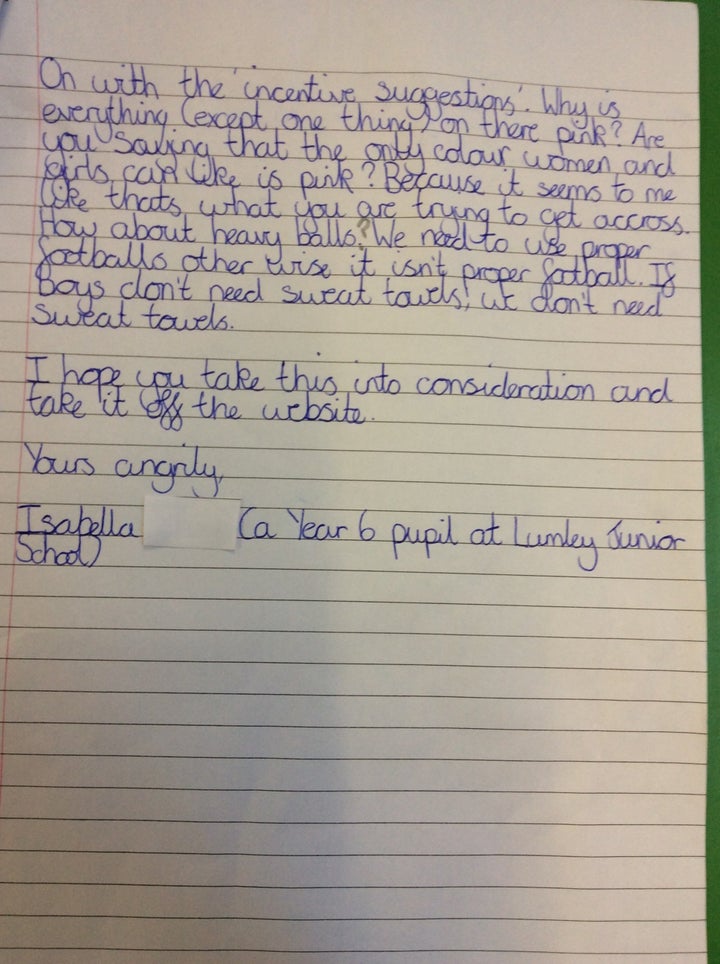 On with the 'incentive suggestions'. Why is
everything (except one thing) on there pink? Are
you saying that the only colour women and
girls can like is pink? Because it seems to me
like thats what you are trying to get accross.
How about heavy balls? We need to use proper
footballs other wise it isn't proper football. If
boys don't need sweat towels, we don't need
sweat towels.
I hope you take this into consideration and
take it off the website.
Yours angrily,
Isabella (a Year 6 pupil at Lumley Junior
School)